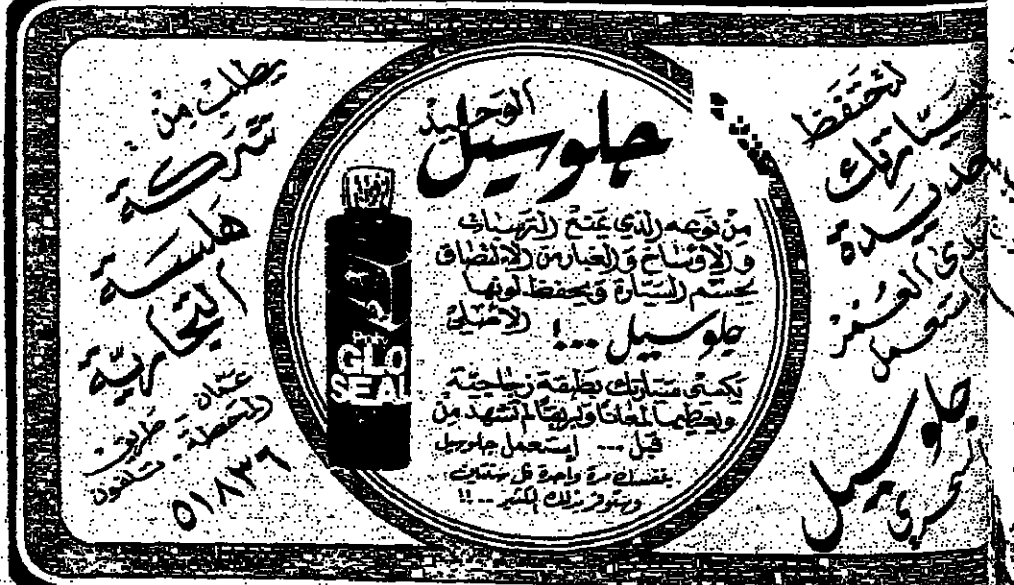 لتحتفظ
سيارتك
جديدة
مدى العمر
استعمل
جلوسيل
السحري
جلوسيل
الوحيد
من نوعه الذي يمنع الترسبات
والاوساخ والغبار من الالتصاق
بجسم السيارة ويحفظ لونها
الاصلي
جلوسيل ...!
يكسي سيارتك بطبقة زجاجية
ويعطيها لمعانا وبريقا لم تشهد من
قبل ... إستعمل جلوسيل
بنفسك مرة واحدة كل سنتين
وستوفر بذلك الكثير ...!!
GLO
SEAL
يطلب من
شركة
هلسة
التجارية
عمان طريق
المحطة - تلفون
٥١٨٣٦